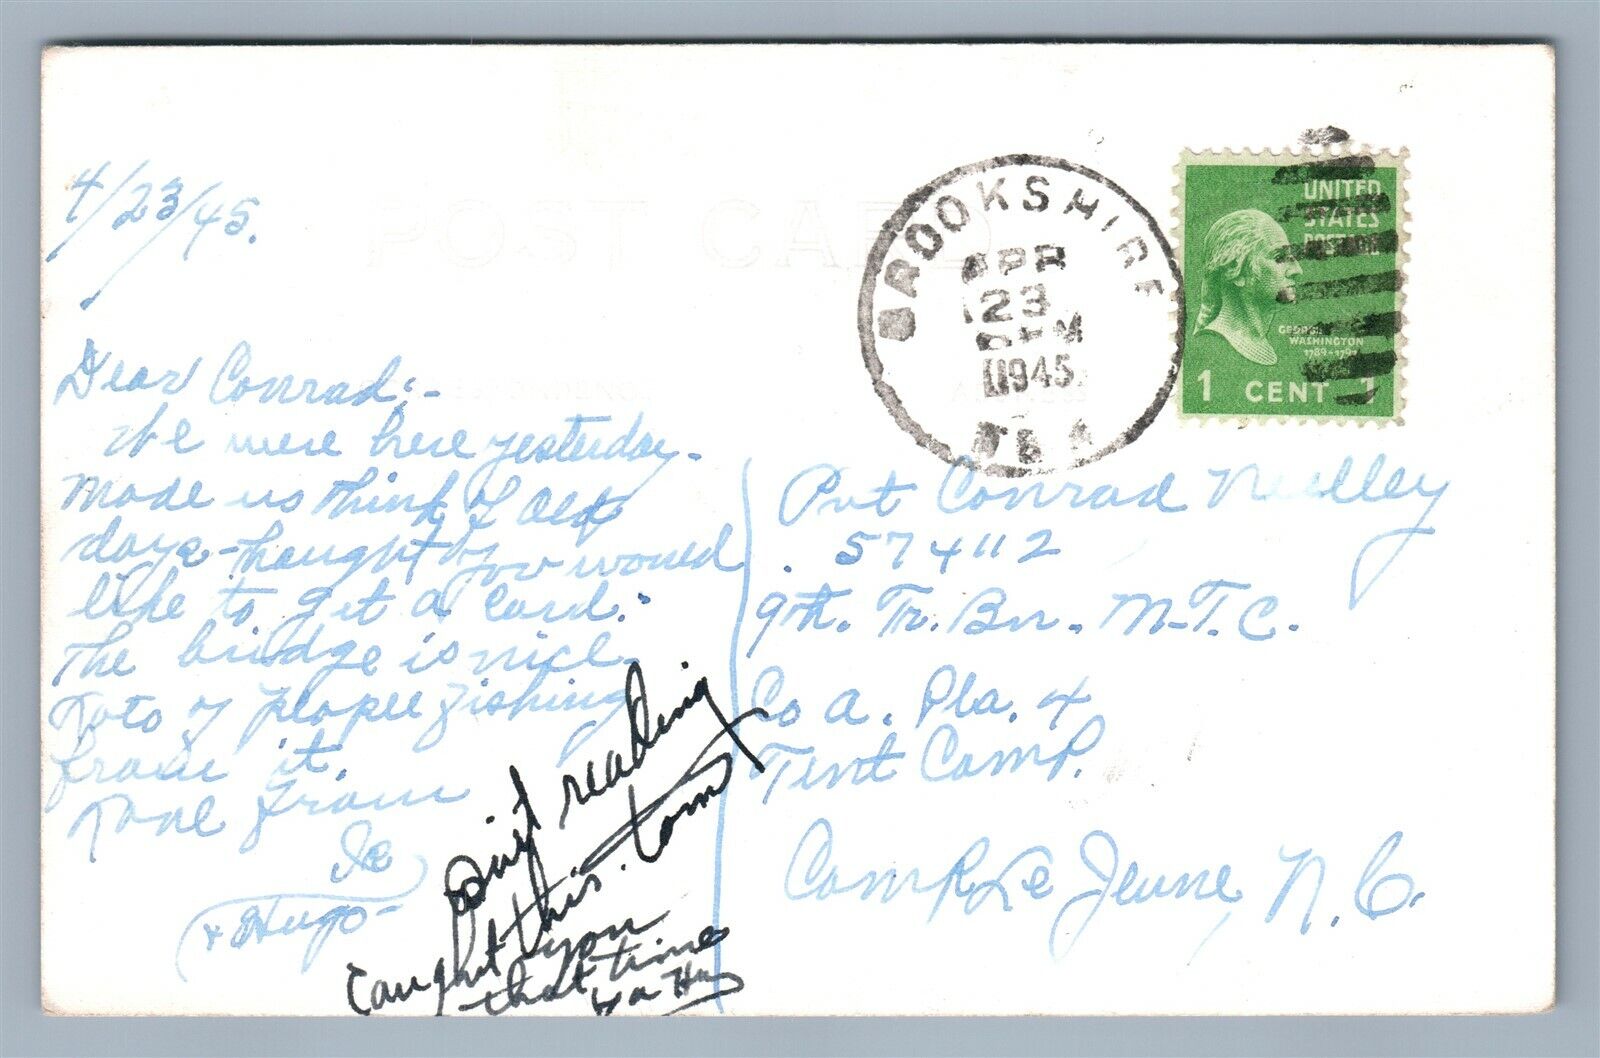 4/23/45.
POST CARD
BROOKSHIRE
APR
23
PM
1945
UNITED
STATES
POSTAGE
GEORGE
WASHINGTON
1789-1797
1 CENT 1
Dear Conrad:-
We were here yesterday-
made us think of old
days-thought you would
like to get a card.
The bridge is nice
Lots of people fishing
from it.
Love from
Ic
& Hugo-
Quit reading
this. Tom
Caught you
that time
ha Ha
Pvt Conrad Neelley
574112
9th. Tr. Bn. M.T.C.
Co a. Pla. 4
Tent Camp.
Camp Le Jeune, N.C.